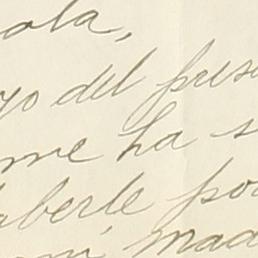 ola,
yo del pres
me ha s
aberle po
mi mad